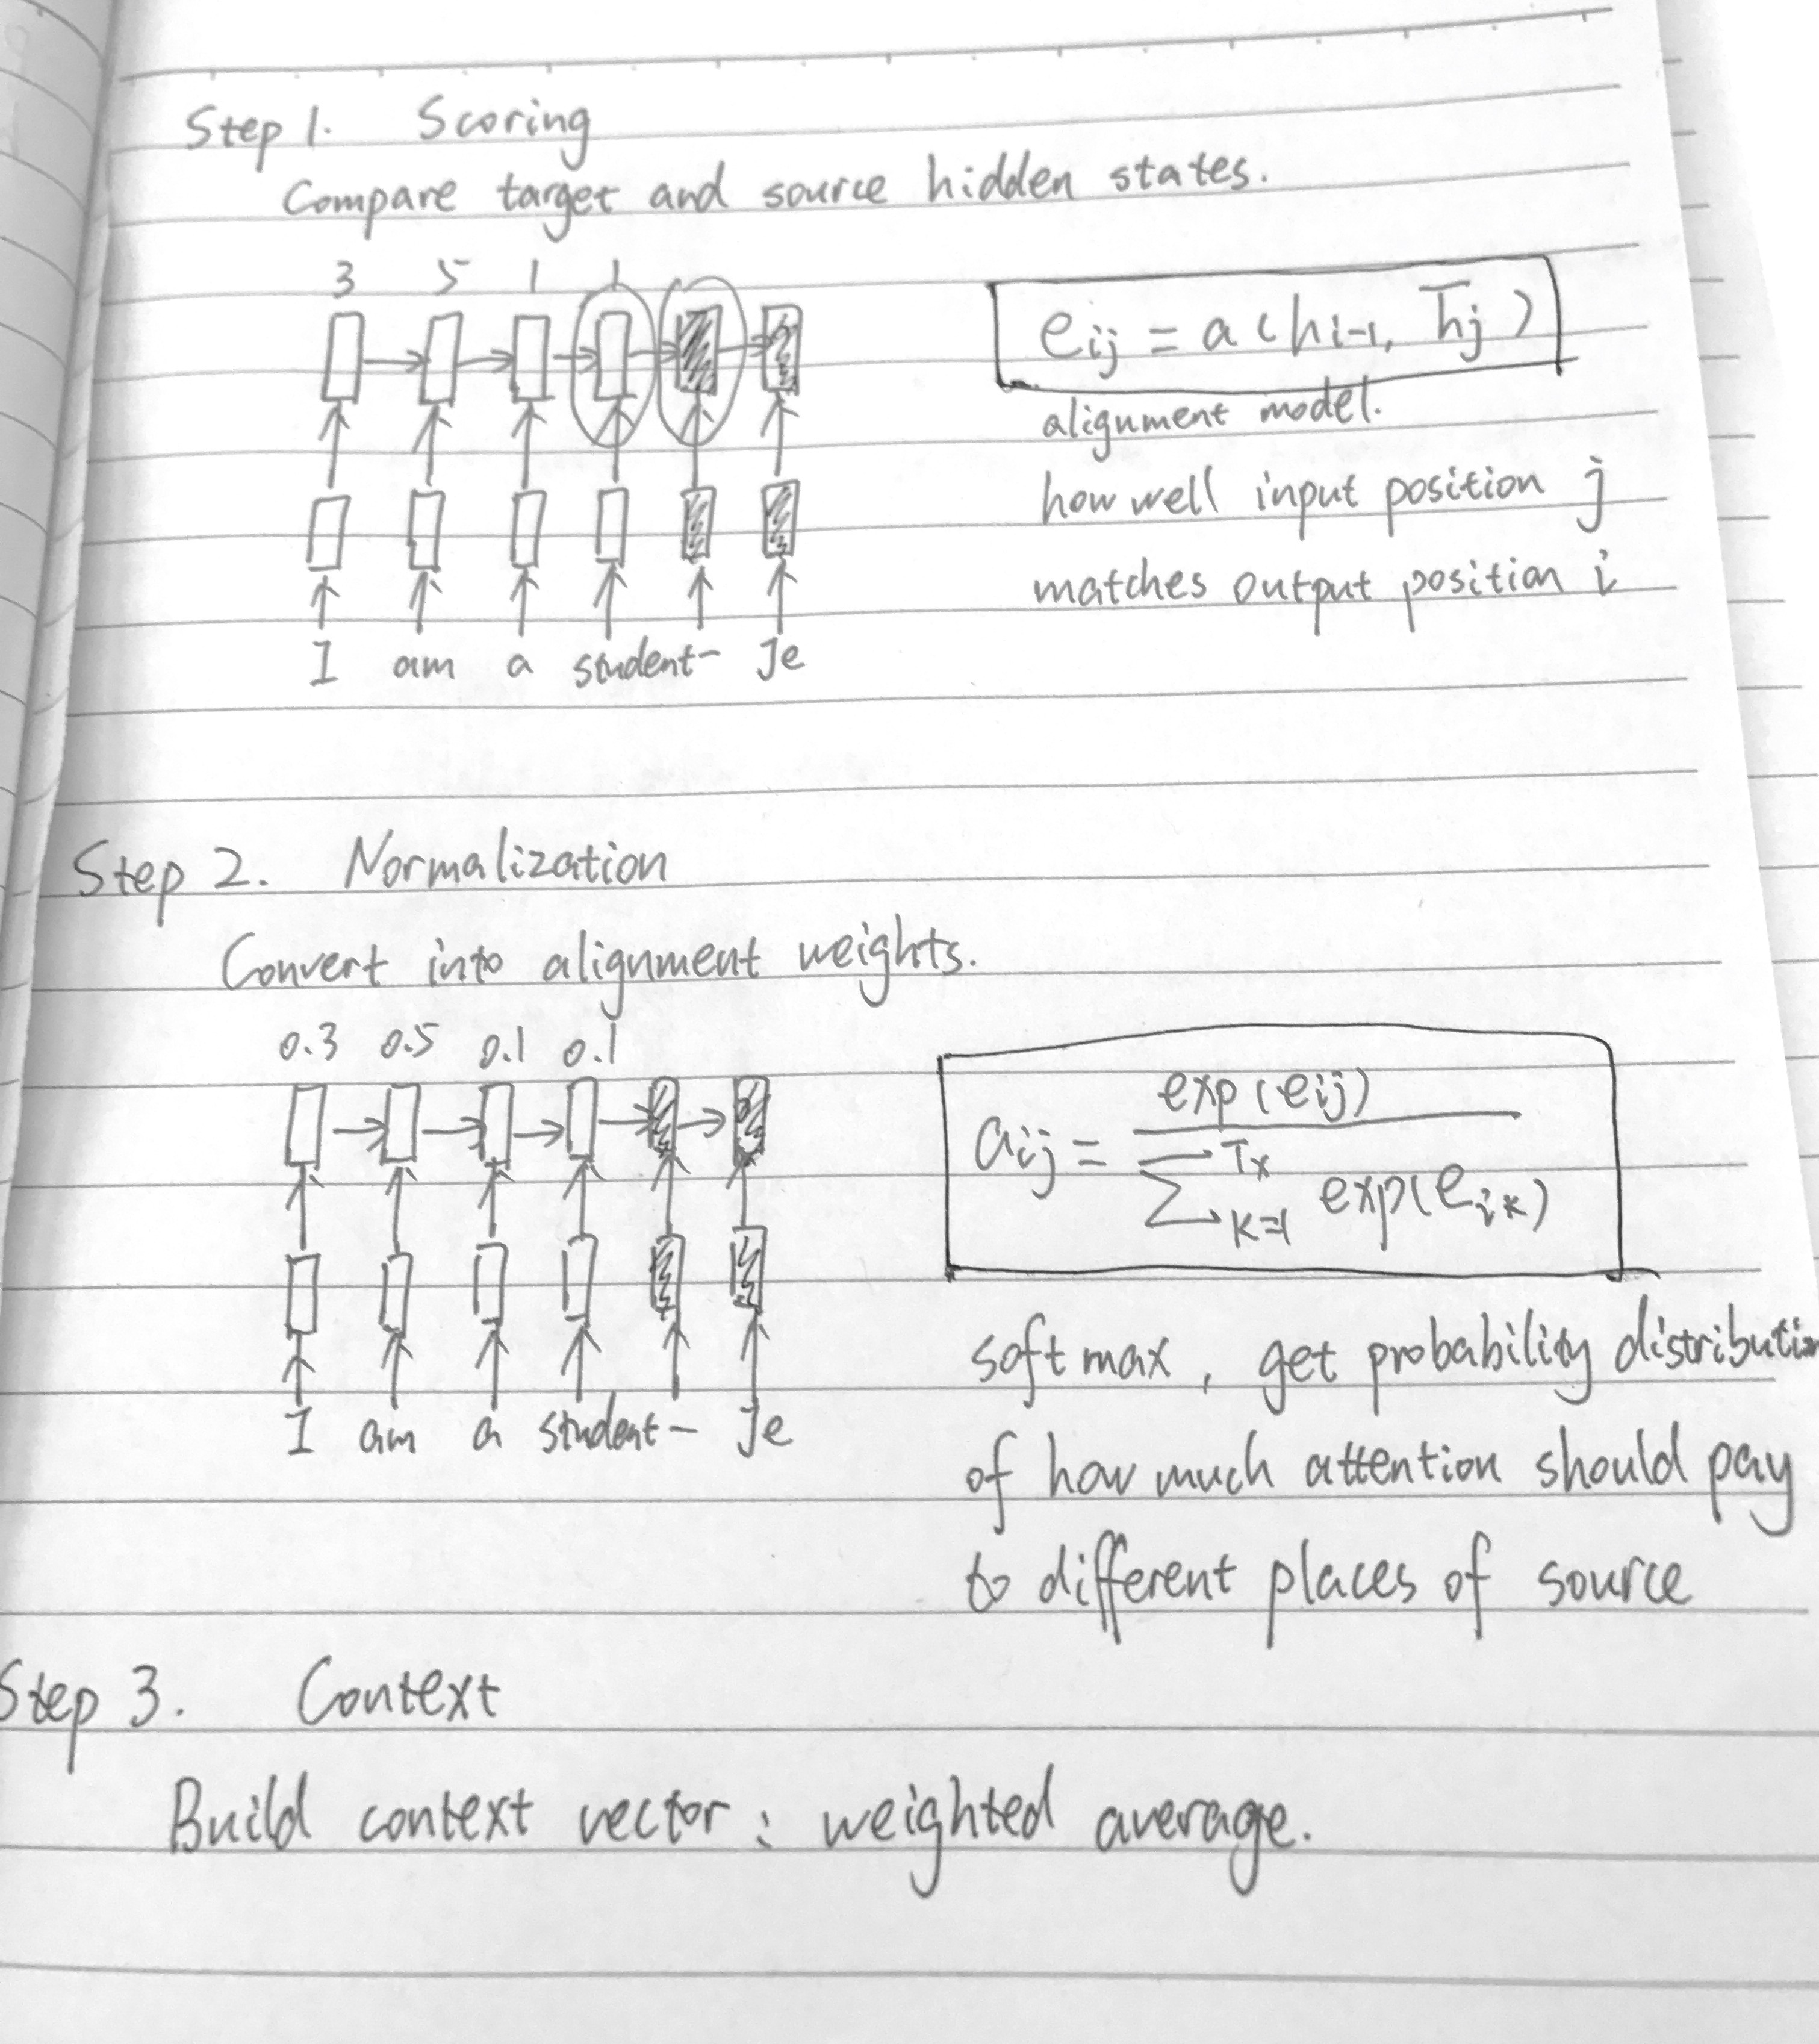 Step 1. Scoring
Compare target and source hidden states.
3 5 1 1
e_{ij} = a(h_{i-1}, \overline{h}_j)
alignment model.
how well input position j
matches output position i
I am a student – Je
Step 2. Normalization
Convert into alignment weights.
0.3 0.5 0.1 0.1
a_{ij} = \frac{exp(e_{ij})}{\sum_{k=1}^{T_x} exp(e_{ik})}
softmax, get probability distribution
of how much attention should pay
to different places of source
I am a student – Je
Step 3. Context
Build context vector: weighted average.